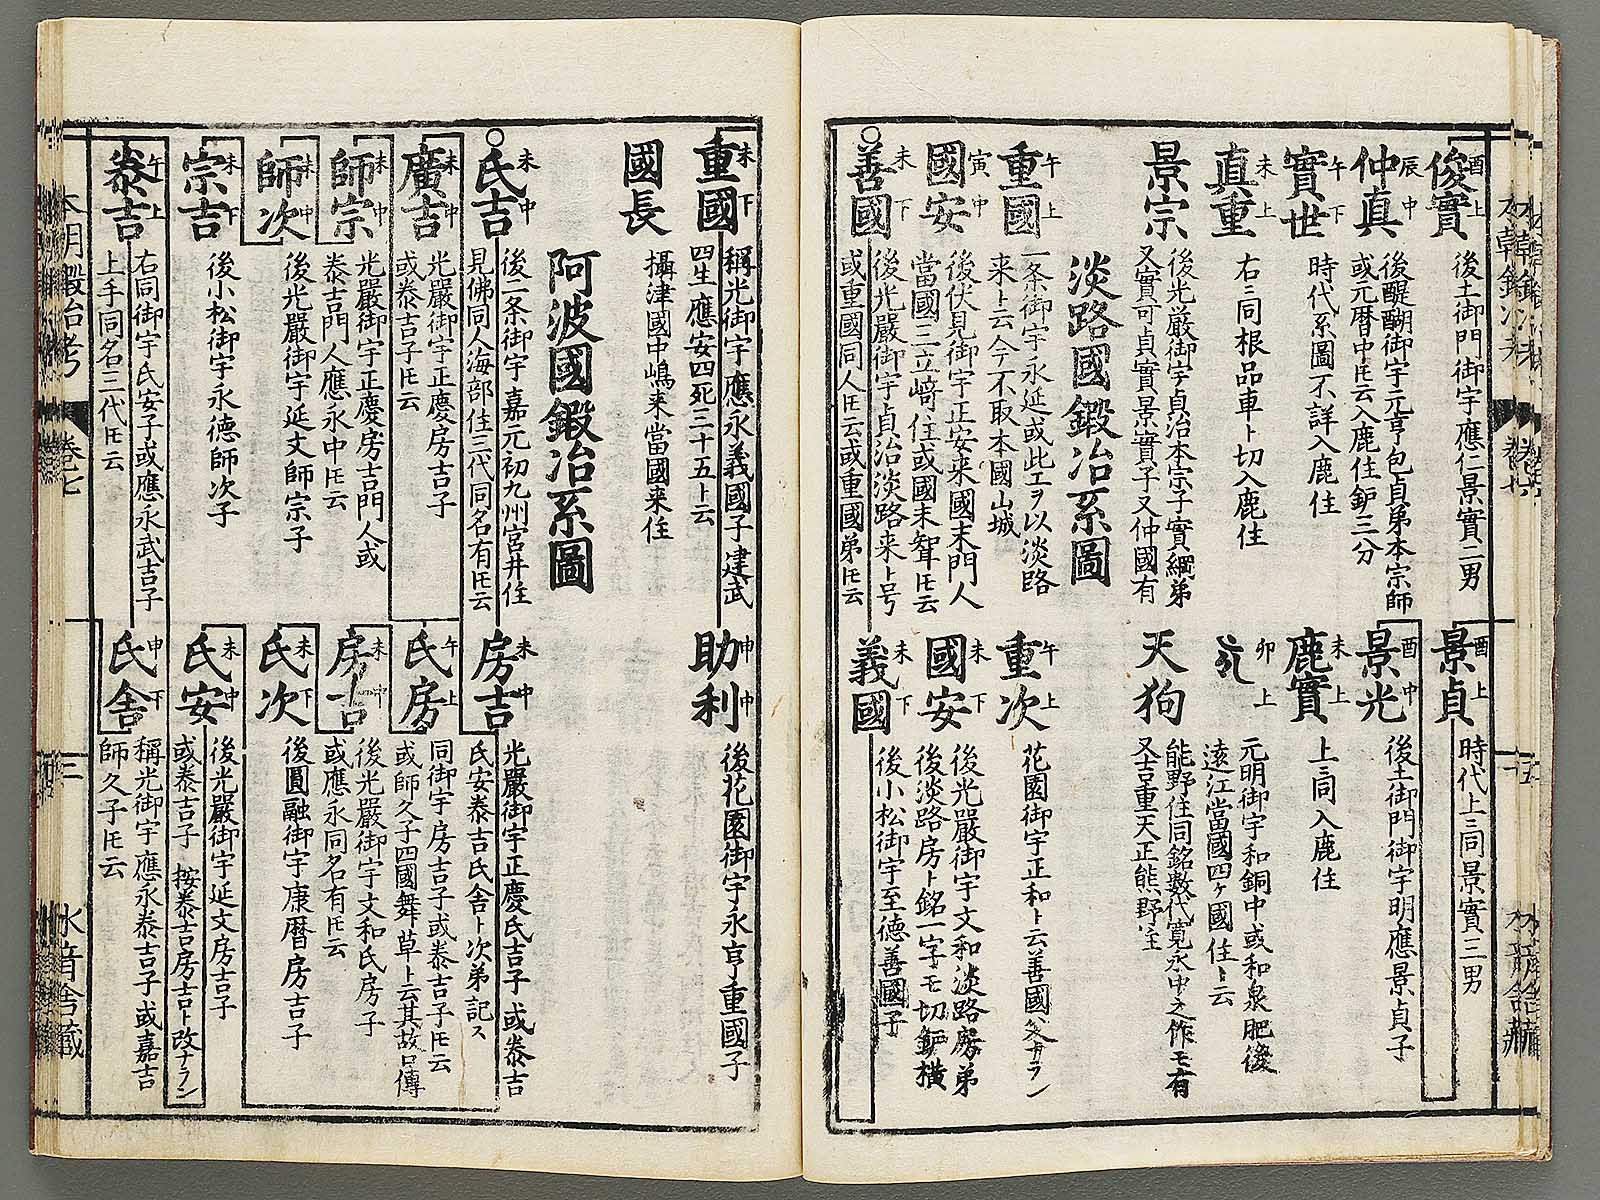 俊實 酉上
後土御門御宇應仁景實二男
景貞 酉上
時代上ニ同景實三男
仲真 辰中
後醍醐御宇元亨包貞弟本宗師
或元暦中トモ云入鹿住鈩三分
景光 酉中
後土御門御宇明應景貞子
實世 午下
時代系圖不詳入鹿住
鹿實 未上
上ニ同入鹿住
真重 未上
右ニ同根品車ト切入鹿住
卯上
元明御宇和銅中或和泉肥後
遠江當國四ケ國住ト云
景宗
後光厳御宇貞治本宗子實綱弟
又實可貞實景實子又仲國有
天狗
能野住同銘數代寛永中之作モ有
又吉重天正熊野住
淡路國鍛冶系圖
重國 午上
一条御宇永延或此エヲ以淡路
来ト云今不取本國山城
重次 午上
花園御宇正和ト云善國父ナラン
國安 寅中
後伏見御宇正安来國末門人
當國三立﨑住或國末聟トモ云
國安 未下
後光嚴御宇文和淡路房弟
後淡路房ト銘一字モ切鈩横
善國 未下
後光嚴御宇貞治淡路来ト号
或重國同人トモ云或重國弟トモ云
義國 未下
後小松御宇至徳善國子
重國 未下
稱光御宇應永義國子建武
四生應安四死三十五ト云
助利 申中
後花園御宇永亨重國子
國長
攝津國中嶋来當國来住
阿波國鍛冶系圖
氏吉 未中
後二条御宇嘉元初九州宮井住
見佛同人海部住三代同名有トモ云
房吉 未中
光嚴御宇正慶氏吉子或泰吉
氏安泰吉氏舎ト次弟記ス
廣吉 未中
光嚴御宇正慶房吉子
或泰吉子トモ云
氏房 午上
同御宇房吉子或泰吉子トモ云
或師久子四國舞草ト云其故口傳
師宗 未中
光嚴御宇正慶房吉門人或
泰吉門人應永中トモ云
房吉 未中
後光嚴御宇文和氏房子
或應永同名有トモ云
師次 未中
後光嚴御宇延文師宗子
氏次 未下
後圓融御宇康暦房吉子
宗吉 未下
後小松御宇永徳師次子
氏安 未中
後光嚴御宇延文房吉子
或泰吉子 按泰吉房吉ト改ナラン
泰吉 午上
右同御宇氏安子或應永武吉子
上手同名三代トモ云
氏舎 申下
稱光御宇應永泰吉子或嘉吉
師久子トモ云
本朝鍛冶考 卷七 三 水音舎藏